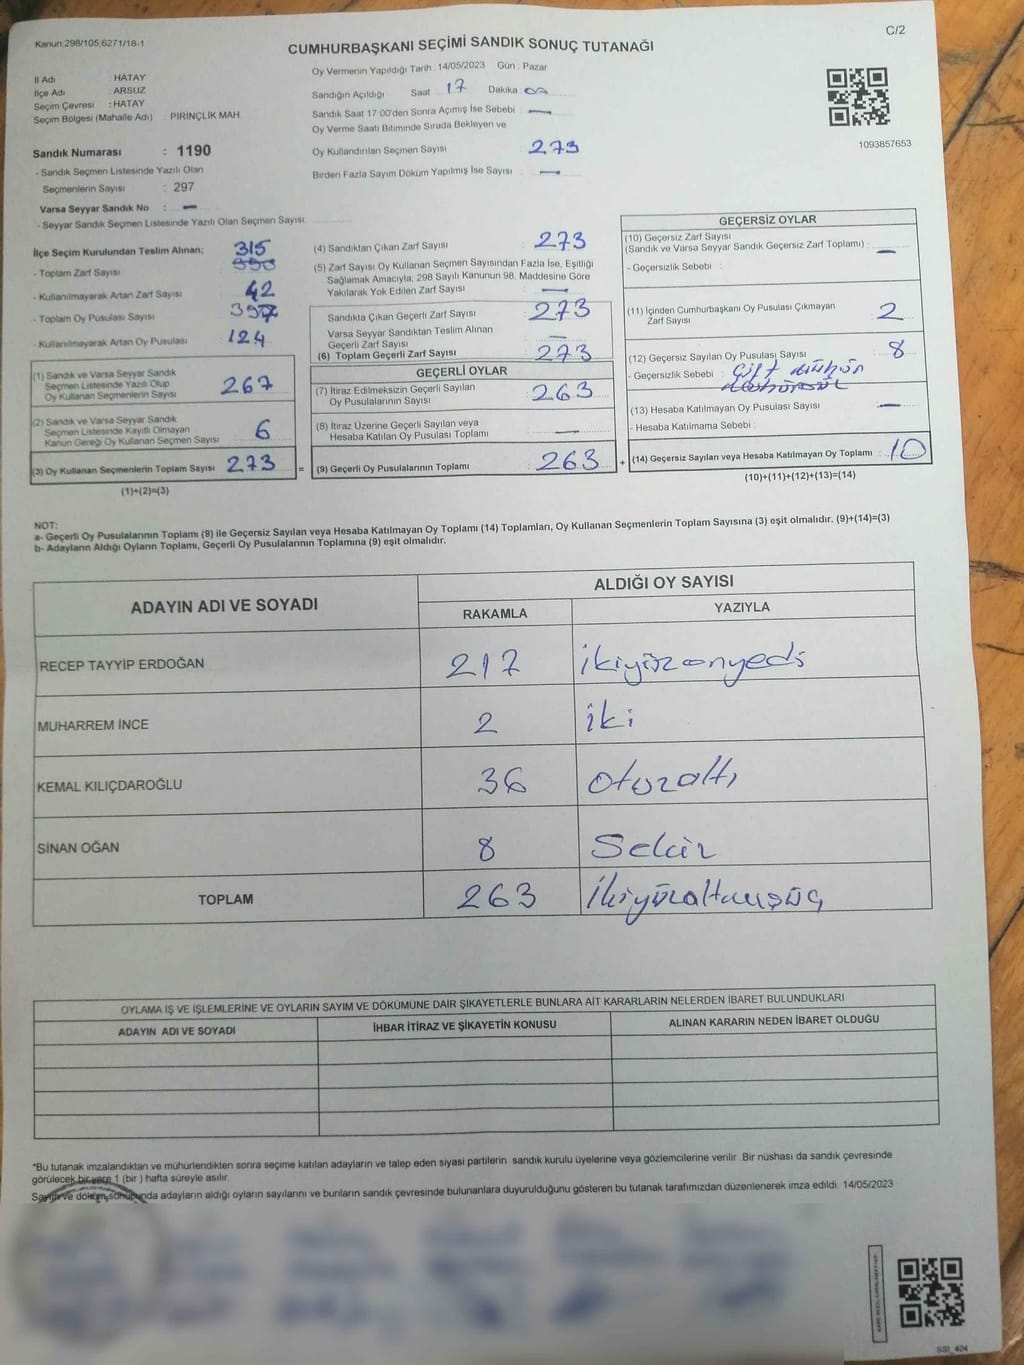 Kanun;298/105,6271/18-1
C/2
CUMHURBAŞKANI SEÇİMİ SANDIK SONUÇ TUTANAĞI
İl Adı HATAY
İlçe Adı : ARSUZ
Seçim Çevresi : HATAY
Seçim Bölgesi (Mahalle Adı) PİRİNÇLİK MAH
Sandık Numarası : 1190
- Sandık Seçmen Listesinde Yazılı Olan
Seçmenlerin Sayısı : 297
Varsa Seyyar Sandık No : —
- Seyyar Sandık Seçmen Listesinde Yazılı Olan Seçmen Sayısı:
Oy Vermenin Yapıldığı Tarih :14/05/2023 Gün : Pazar
Sandığın Açıldığı Saat 17 Dakika
Sandık Saat 17:00'den Sonra Açımış İse Sebebi —
Oy Verme Saati Bitiminde Sırada Bekleyen ve
Oy Kullandırılan Seçmen Sayısı : 273
Birden Fazla Sayım Döküm Yapılmış İse Sayısı : —
1093857653
İlçe Seçim Kurulundan Teslim Alınan; 315
- Toplam Zarf Sayısı
- Kullanılmayarak Artan Zarf Sayısı 42
- Toplam Oy Pusulası Sayısı 397
- Kullanılmayarak Artan Oy Pusulası 124
(1) Sandık ve Varsa Seyyar Sandık
Seçmen Listesinde Yazılı Olup
Oy Kullanan Seçmenlerin Sayısı 267
(2) Sandık ve Varsa Seyyar Sandık
Seçmen Listesinde Kayıtlı Olmayan
Kanun Gereği Oy Kullanan Seçmen Sayısı 6
(3) Oy Kullanan Seçmenlerin Toplam Sayısı 273 =
(1)+(2)=(3)
(4) Sandıktan Çıkan Zarf Sayısı 273
(5) Zarf Sayısı Oy Kullanan Seçmen Sayısından Fazla İse, Eşitliği
Sağlamak Amacıyla, 298 Sayılı Kanunun 98. Maddesine Göre
Yakılarak Yok Edilen Zarf Sayısı —
Sandıkta Çıkan Geçerli Zarf Sayısı 273
Varsa Seyyar Sandıktan Teslim Alınan
Geçerli Zarf Sayısı —
(6) Toplam Geçerli Zarf Sayısı 273
GEÇERLİ OYLAR
(7) İtiraz Edilmeksizin Geçerli Sayılan
Oy Pusulalarının Sayısı 263
(8) İtiraz Üzerine Geçerli Sayılan veya
Hesaba Katılan Oy Pusulası Toplamı —
(9) Geçerli Oy Pusulalarının Toplamı 263 +
GEÇERSİZ OYLAR
(10) Geçersiz Zarf Sayısı
(Sandık ve Varsa Seyyar Sandık Geçersiz Zarf Toplamı) : —
- Geçersizlik Sebebi :
(11) İçinden Cumhurbaşkanı Oy Pusulası Çıkmayan
Zarf Sayısı 2
(12) Geçersiz Sayılan Oy Pusulası Sayısı 8
- Geçersizlik Sebebi : Çift mühür
(13) Hesaba Katılmayan Oy Pusulası Sayısı —
- Hesaba Katılmama Sebebi :
(14) Geçersiz Sayılan veya Hesaba Katılmayan Oy Toplamı : 10
(10)+(11)+(12)+(13)=(14)
NOT:
a- Geçerli Oy Pusulalarının Toplamı (9) ile Geçersiz Sayılan veya Hesaba Katılmayan Oy Toplamı (14) Toplamları, Oy Kullanan Seçmenlerin Toplam Sayısına (3) eşit olmalıdır. (9)+(14)=(3)
b- Adayların Aldığı Oyların Toplamı, Geçerli Oy Pusulalarının Toplamına (9) eşit olmalıdır.
ADAYIN ADI VE SOYADI
ALDIĞI OY SAYISI
RAKAMLA YAZIYLA
RECEP TAYYİP ERDOĞAN 217 ikiyüzonyedi
MUHARREM İNCE 2 iki
KEMAL KILIÇDAROĞLU 36 otuzaltı
SİNAN OĞAN 8 Sekiz
TOPLAM 263 ikiyüzaltmışüç
OYLAMA İŞ VE İŞLEMLERİNE VE OYLARIN SAYIM VE DÖKÜMÜNE DAİR ŞİKAYETLERLE BUNLARA AİT KARARLARIN NELERDEN İBARET BULUNDUKLARI
ADAYIN ADI VE SOYADI İHBAR İTİRAZ VE ŞİKAYETİN KONUSU ALINAN KARARIN NEDEN İBARET OLDUĞU
*Bu tutanak imzalandıktan ve mühürlendikten sonra seçime katılan adayların ve talep eden siyasi partilerin sandık kurulu üyelerine veya gözlemcilerine verilir .Bir nüshası da sandık çevresinde
görülecek bir yere 1 (bir ) hafta süreyle asılır.
Sayım ve döküm sonucunda adayların aldığı oyların sayılarını ve bunların sandık çevresinde bulunanlara duyurulduğunu gösteren bu tutanak tarafımızdan düzenlenerek imza edildi. 14/05/2023